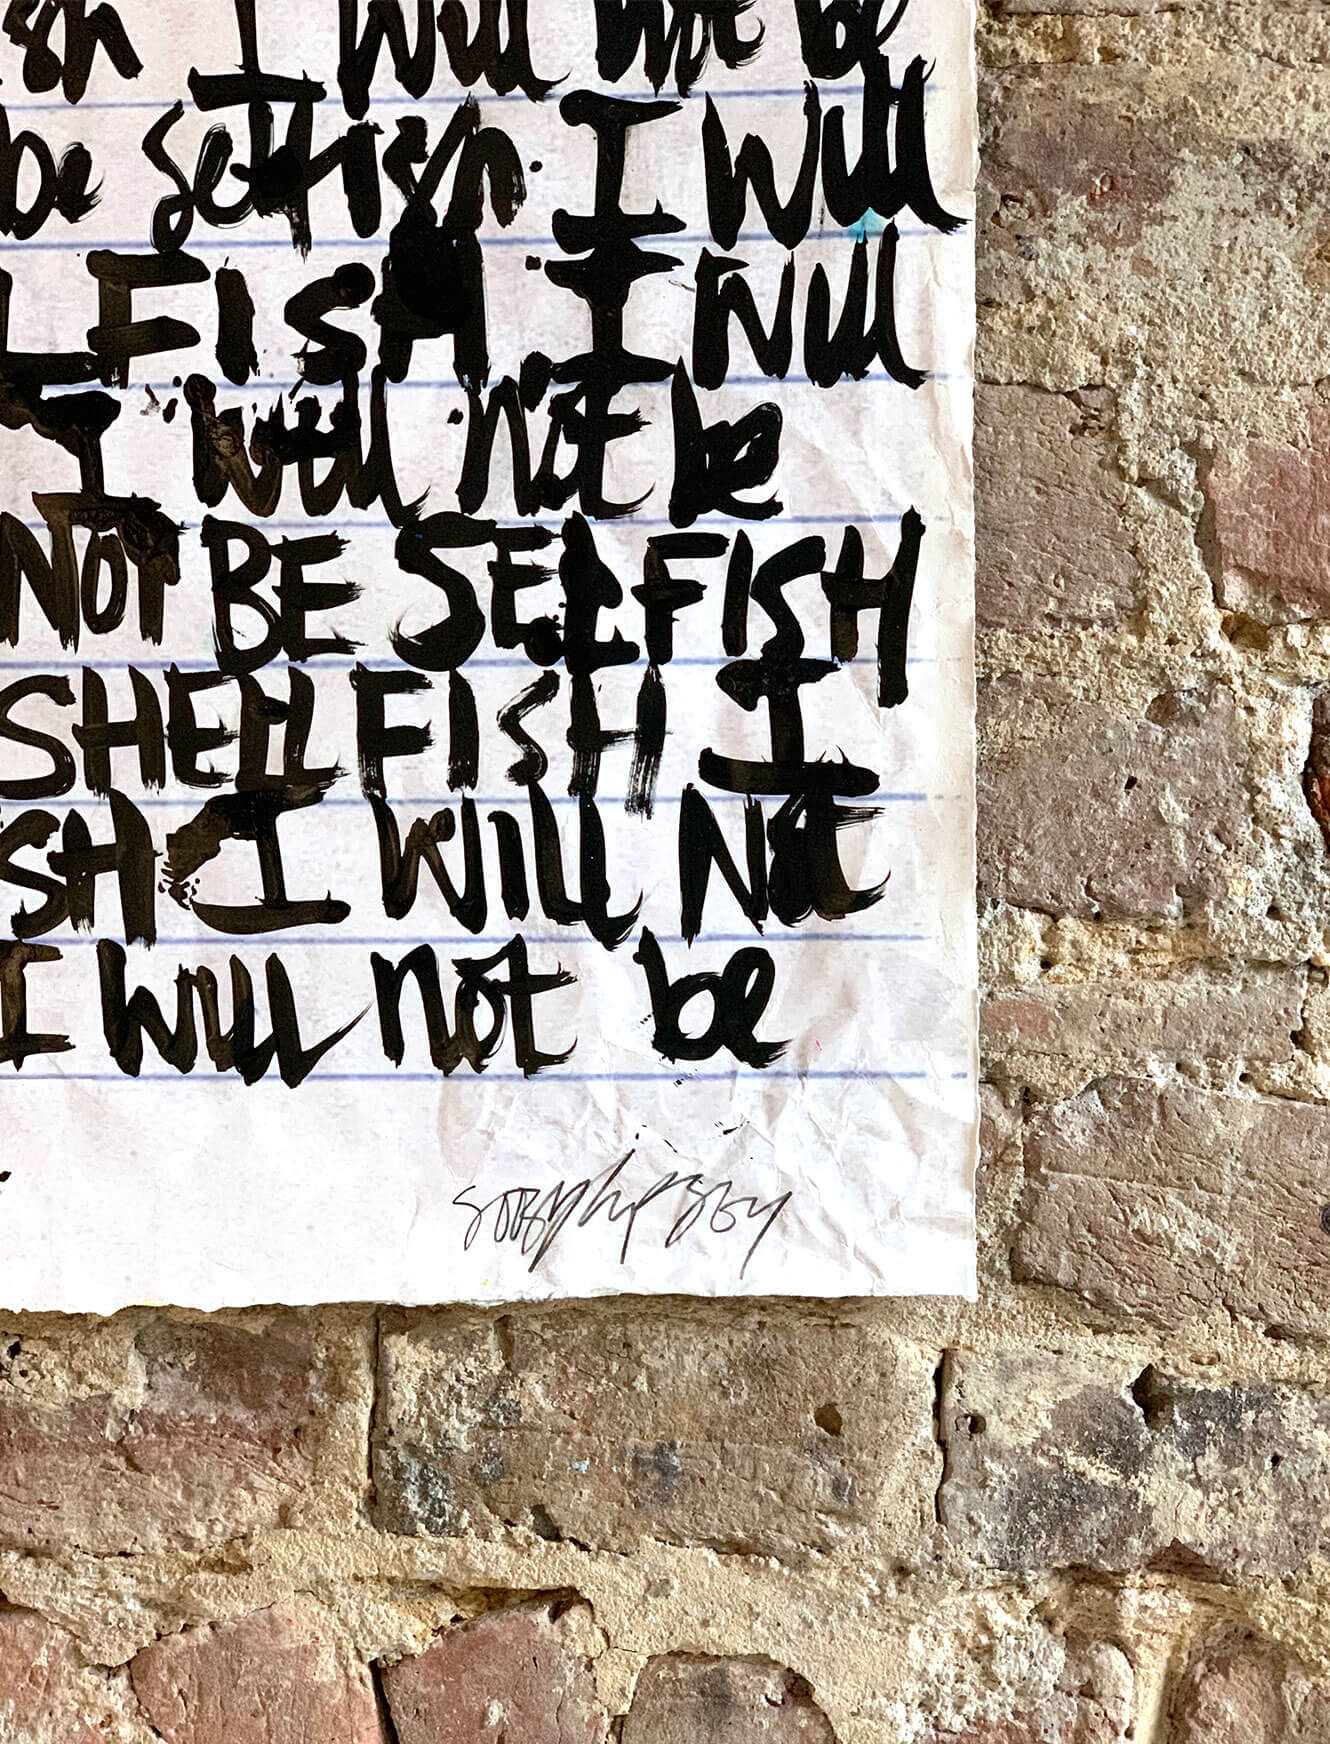 ish I will not be
be selfish I will
LFISH I will
I will not be
NOT BE SELFISH
SHELLFISH I
SH I WILL NOT
I WILL not be